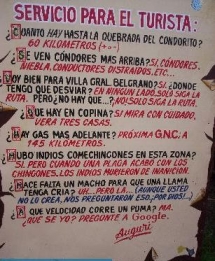 SERVICIO PARA EL TURISTA:
¿CUANTO HAY HASTA LA QUEBRADA DEL CONDORITO?
60 KILOMETROS (+o-)
¿SE VEN CÓNDORES MAS ARRIBA? SI, CÓNDORES,
NIEBLA, CONDUCTORES DISTRAIDOS, ETC...
¿VOY BIEN PARA VILLA GRAL. BELGRANO? SI. ¿DONDE
TENGO QUE DESVIAR? EN NINGUN LADO, SOLO SIGA LA
RUTA. PERO ¿NO HAY QUE...? ¡NO! SOLO SIGA LA RUTA.
¿QUE HAY EN COPINA? SI MIRA CON CUIDADO,
VERA TRES CASAS.
¿HAY GAS MAS ADELANTE? PRÓXIMA G.N.C. A
145 KILOMETROS.
¿HUBO INDIOS COMECHINGONES EN ESTA ZONA?
SI. PERO CUANDO UNA PLAGA ACABO CON LOS
CHINGONES. LOS INDIOS MURIERON DE INANICION.
¿HACE FALTA UN MACHO PARA QUE UNA LLAMA
TENGA CRIA? UH... PERO LA... (AUNQUE USTED
NO LO CREA, NOS PREGUNTARON ESO, ¡POR DIOS!)
¿A QUE VELOCIDAD CORRE UN PUMA? MA.
¿QUE SE YO? PREGUNTE A Google.
Auguri